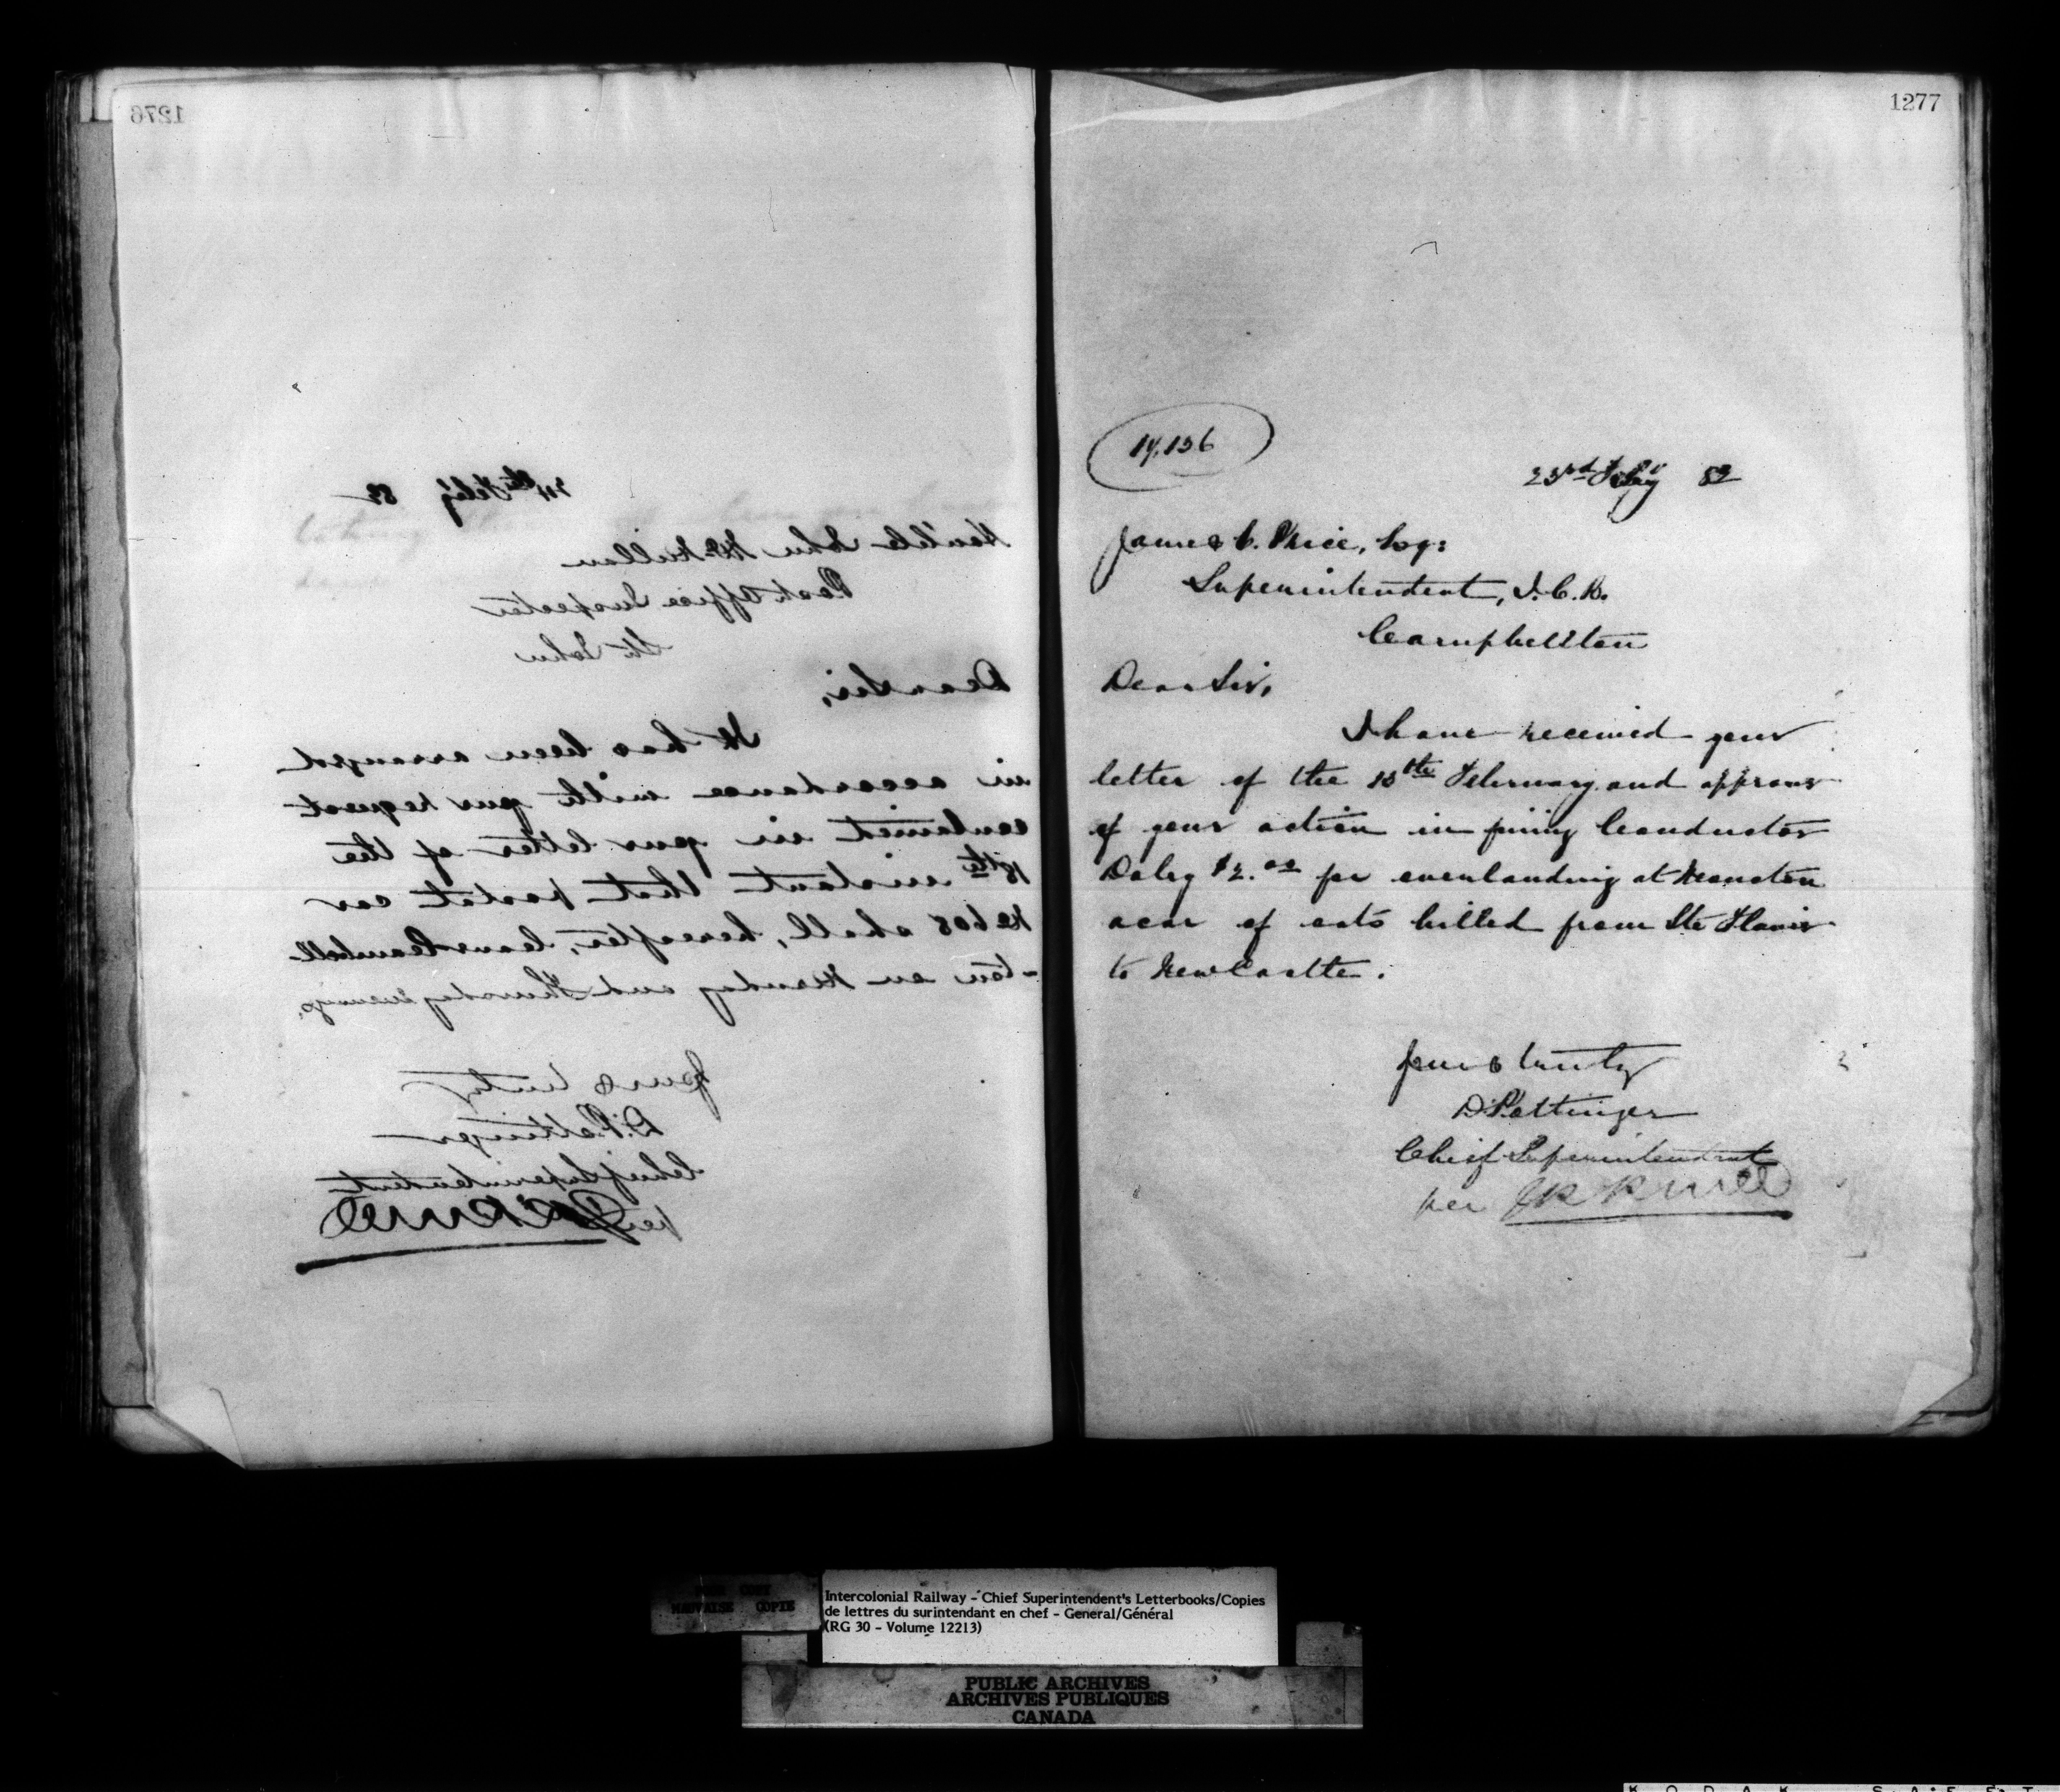 1276
24th Feb'y 82
Hon'ble John McMillan
Post Office Inspector
St John
Dear Sir,
It has been arranged
in accordance with your request
contained in your letter of the
18th instant that postal car
No 608 shall, hereafter, leave Campbell
-ton on Monday and Thursday evenings.
Yours truly
D. Pottinger
Chief Superintendent
per
1277
23rd Feby 82
James C. Price, Esq:
Superintendent, I. C. R.
Campbellton
Dear Sir,
I have received your
letter of the February and approve
of your action in fining Conductor
Daley $2.00 for overlanding at Moncton
a car of oats billed from Ste Flavie
to NewCastle.
Yours truly
D. Pottinger
Chief Superintendent
per
POOR COPY
MAUVAISE COPIE
Intercolonial Railway - Chief Superintendent's Letterbooks/Copies
de lettres du surintendant en chef - General/Général
(RG 30 - Volume 12213)
PUBLIC ARCHIVES
ARCHIVES PUBLIQUES
CANADA